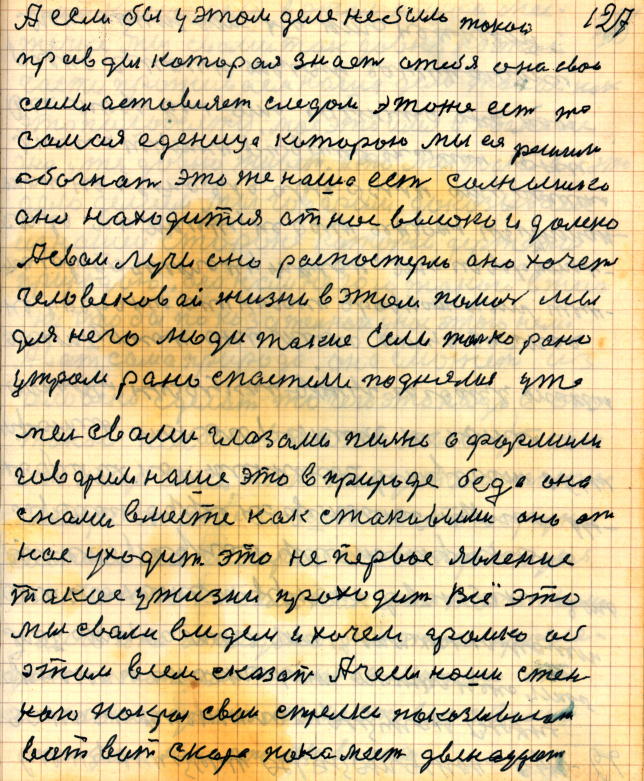 А если бы у этом деле небыло такои 127
правды которая знает отебя она свои
сеими аставляет следом этоже ест та
самая еденица которою мы ея решили
абагнат это же наше ест солнышко
ано находится от нас высоко и далеко
Асваи лучи оно распостерло ано хочет
человековаи жизни в этом помоч мы
для него люди такие Если толко рано
утром рано спастели поднялис уже
мы свами глазами пилно оформили
говорим наше это в природе беда она
снами вместе как стаковыми оно от
нас уходит это не первое явление
такое ужизни проходит Всё это
мы свами видем и хочем громко об
этом всем сказат А чеи наши стен
ново покроя сваи стрелки показивают
вот вот скора покажет двенадцат